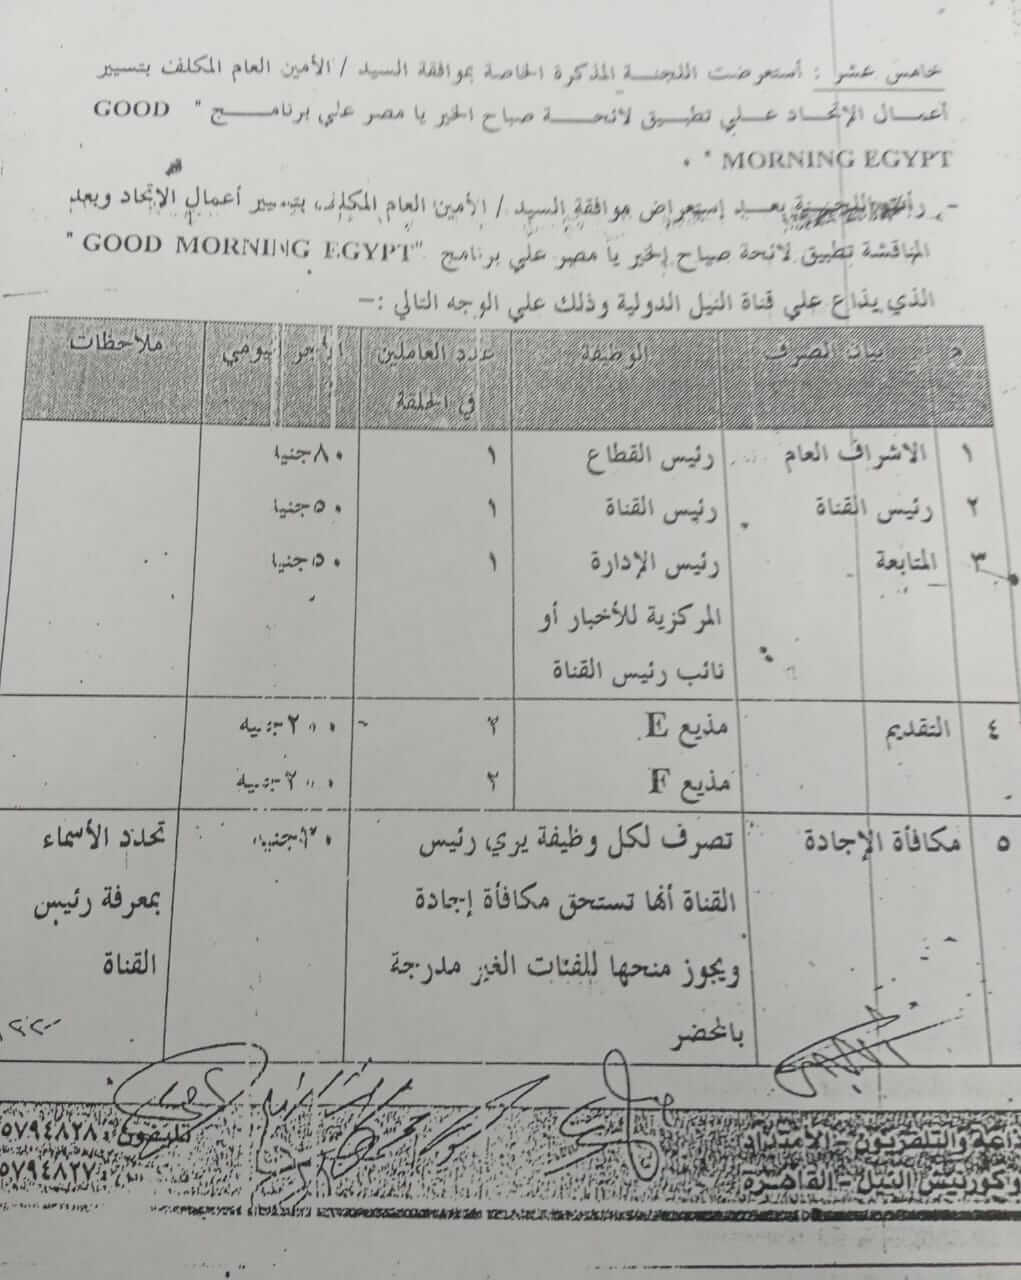 خامس عشر : أستعرضت اللجنة المذكرة الخاصة بموافقة السيد / الأمين العام المكلف بتسيير
أعمال الإتحاد علي تطبيق لائحة صباح الخير يا مصر علي برنامج " GOOD
MORNING EGYPT " .
- رأت اللجنة بعد إستعراض موافقة السيد / الأمين العام المكلف بتسيير أعمال الإتحاد وبعد
المناقشة تطبيق لائحة صباح الخير يا مصر علي برنامج "GOOD MORNING EGYPT "
الذي يذاع علي قناة النيل الدولية وذلك علي الوجه التالي :-
م بيان الصرف الوظيفة عدد العاملين في الحلقة الأجر اليومي ملاحظات
١ الاشراف العام رئيس القطاع ١ ٨٠جنيا
٢ رئيس القناة رئيس القناة ١ ٥٠جنيا
٣ المتابعة رئيس الإدارة ١ ٥٠جنيا
المركزية للأخبار أو
نائب رئيس القناة
٤ التقديم مذيع E ٢ ٢٠٠جنيه
مذيع F ٢ ٢٠٠جنيه
٥ مكافأة الإجادة تصرف لكل وظيفة يري رئيس جنيه تحدد الأسماء
القناة أنها تستحق مكافأة إجادة بمعرفة رئيس
ويجوز منحها للفئات الغير مدرجة القناة
بالمحضر
ذاعة والتلفزيون - الامتداد تليفون : ٥٧٩٤٨٢٨
كورنيش النيل - القاهرة ٥٧٩٤٨٢٧